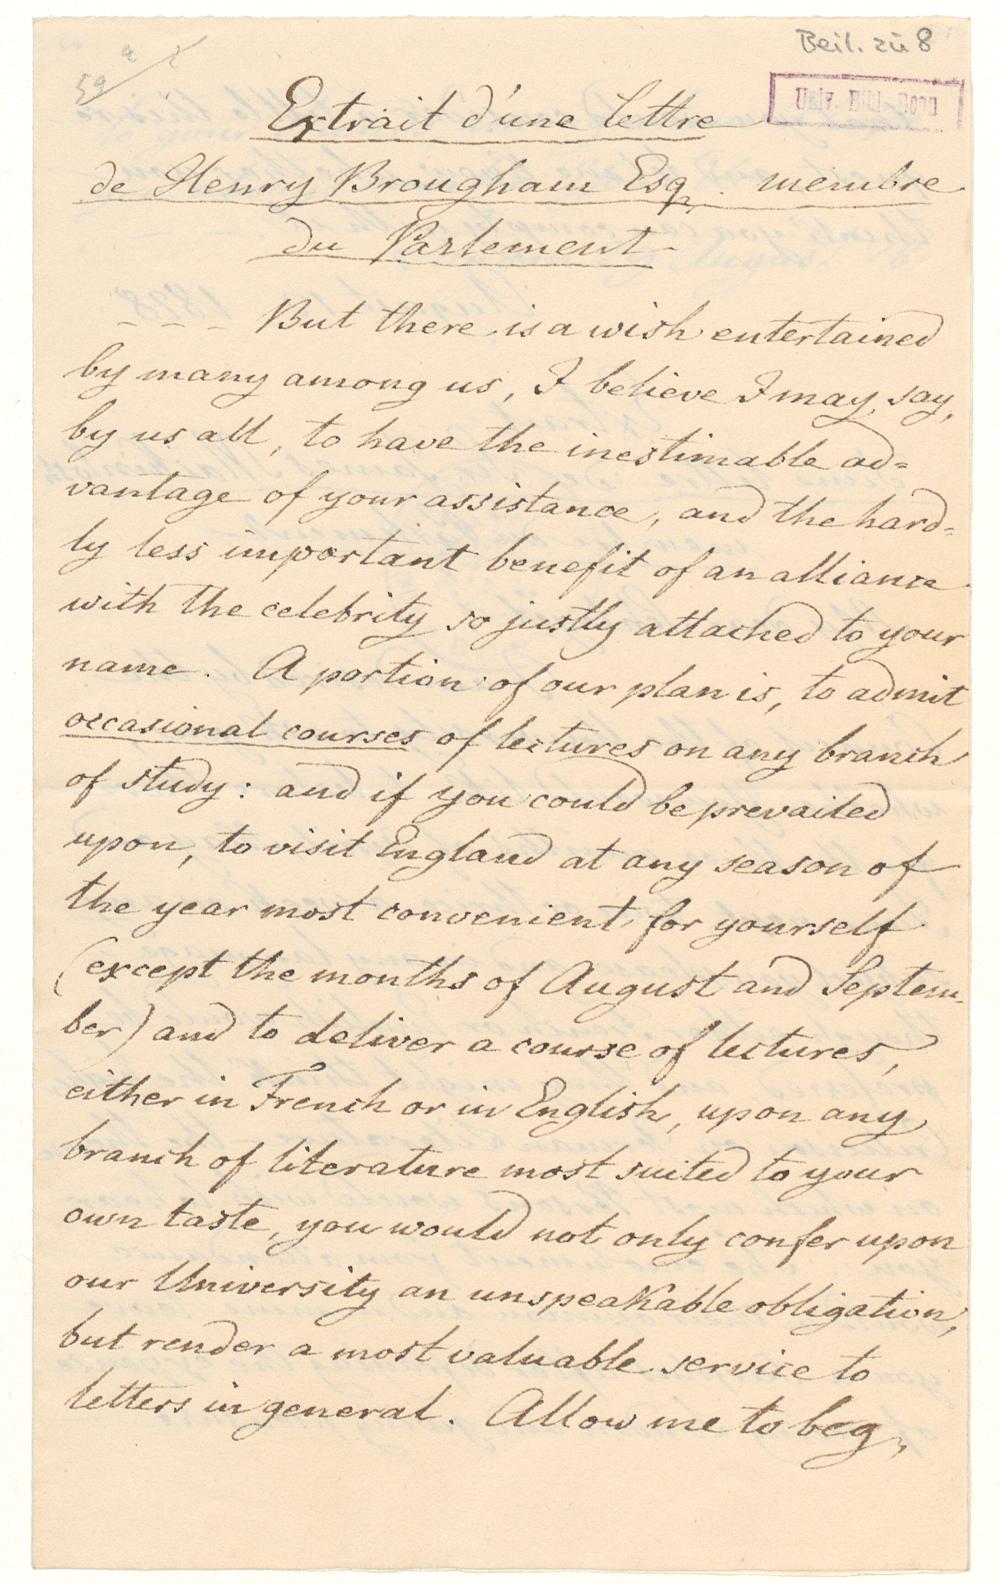 Beil. zu 8
59
Univ. Bibl. Bonn
Extrait d'une lettre
de Henry Brougham Esq. membre
du Parlement
– – – – But there is a wish entertained
by many among us, I believe I may, say,
by us all, to have the inestimable ad=
vantage of your assistance, and the hard=
ly less important benefit of an alliance
with the celebrity so justly attached to your
name. A portion of our plan is, to admit
occasional courses of lectures on any branch
of study: and if you could be prevailed
upon, to visit England at any season of
the year most convenient for yourself
(except the months of August and Septem-
ber) and to deliver a course of lectures,
either in French or in English, upon any
branch of literature most suited to your
own taste, you would not only confer upon
our University an unspeakable obligation,
but render a most valuable service to
letters in general. Allow me to beg,